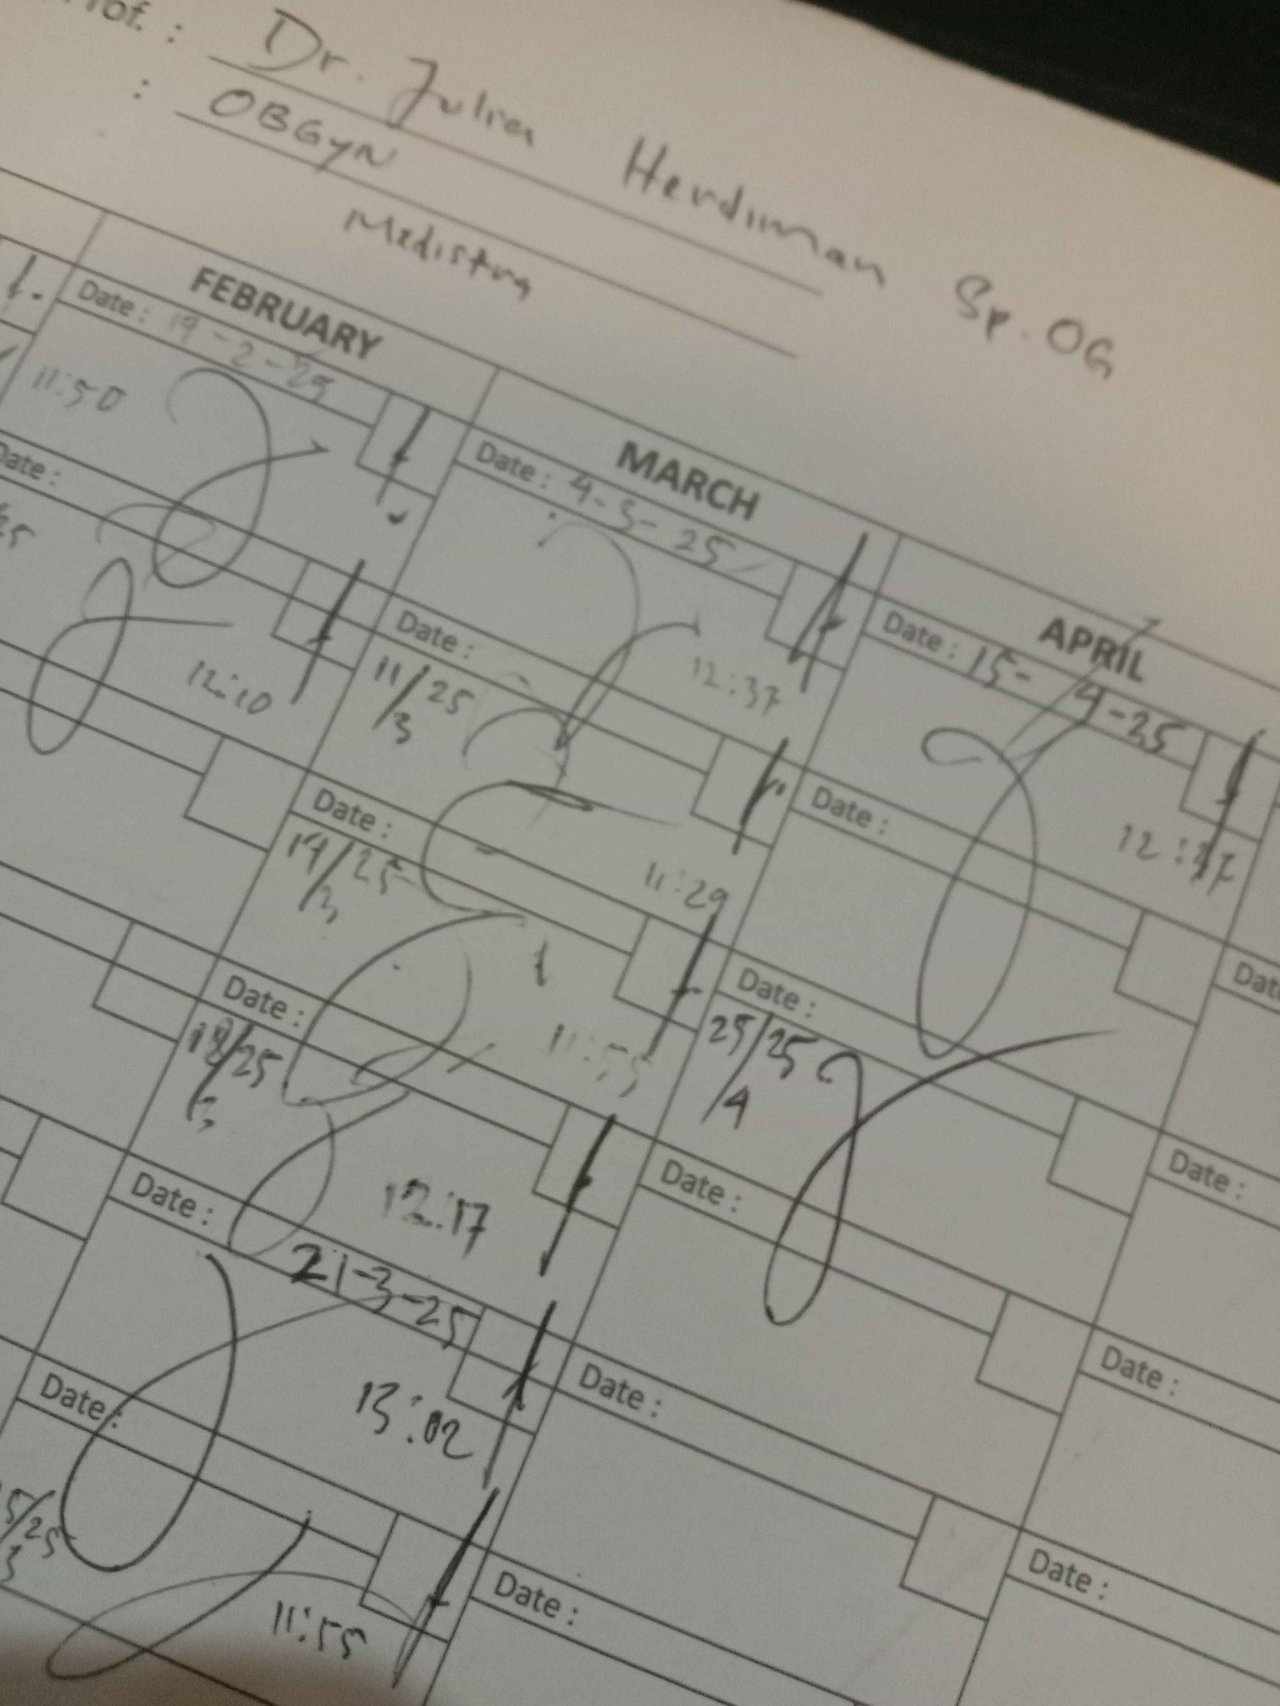 Prof. : Dr. Julia Herdiman Sp. OG
: OBGYN
Medistra
FEBRUARY
Date : 19-2-25
11:50
Date :
12:10
MARCH
Date : 4-3-25
12:37
Date :
11/25
/3
11:29
Date :
14/25
/3
11:55
Date :
18/25
/3
12:17
Date :
21-3-25
13:02
Date :
/25
3
11:55
APRIL
Date : 15-4-25
12:37
Date :
Date :
25/25
/4
Date :
Date :
Date :
Date
Date :
Date :
Date :